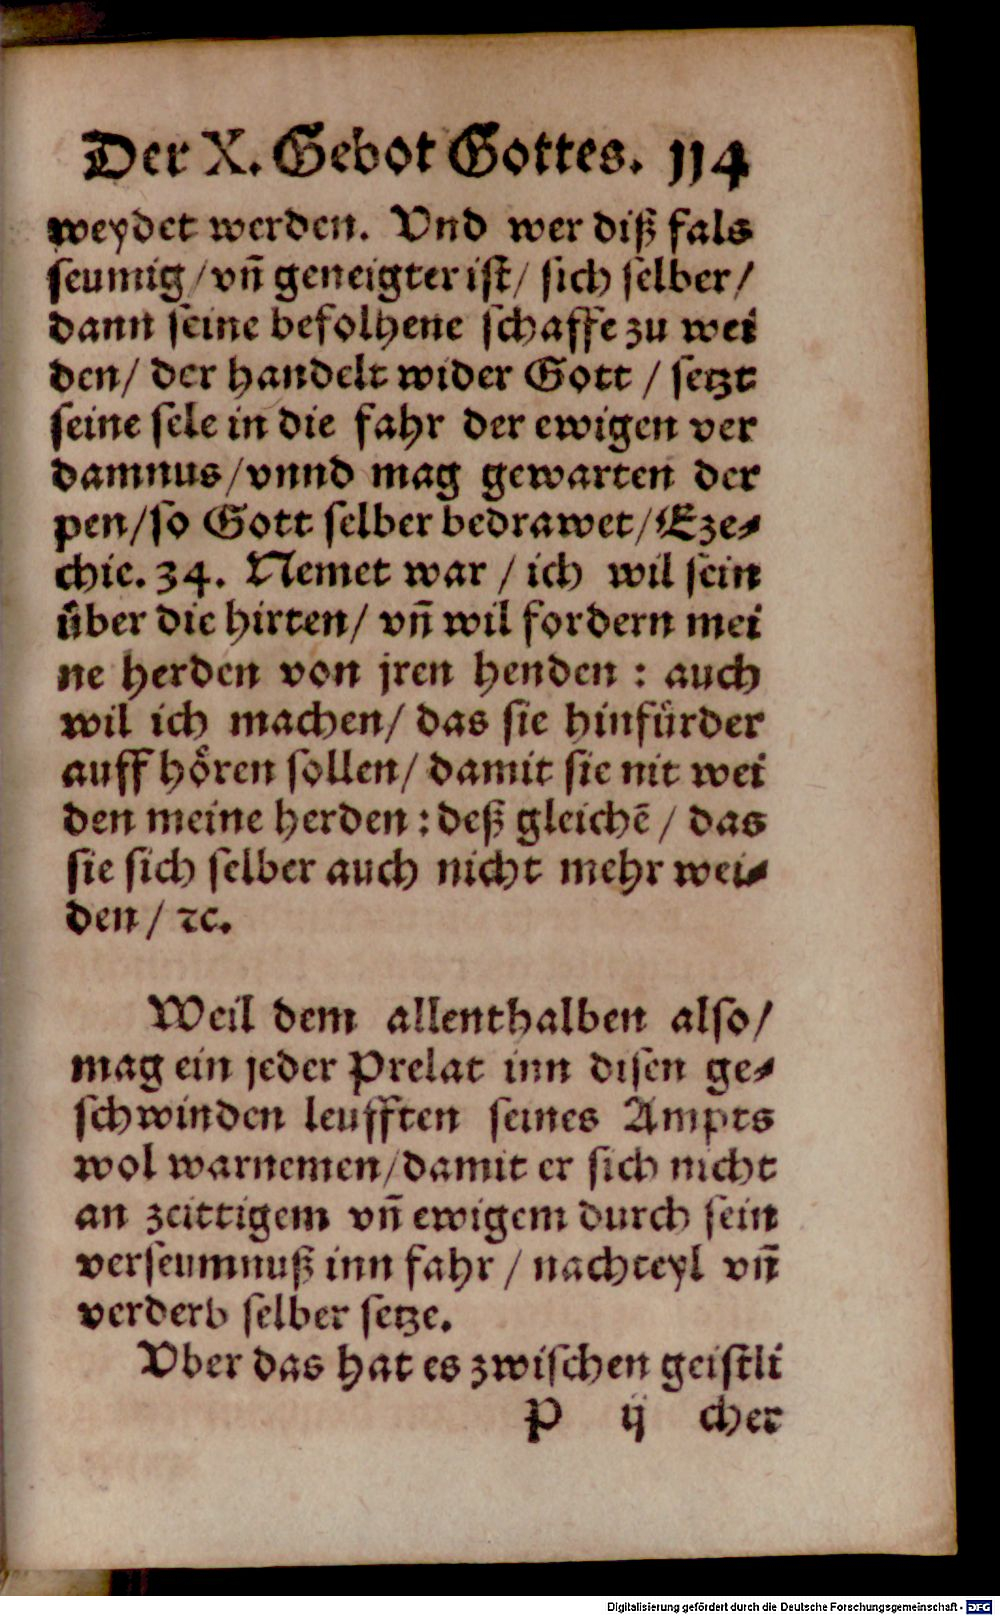 Der X. Gebot Gottes. 114
weydet werden. Vnd wer diß fals
seumig/vñ geneigter ist/ sich selber/
dann seine befolhene schaffe zu wei
den/ der handelt wider Gott / setzt
seine sele in die fahr der ewigen ver
damnus/vnnd mag gewarten der
pen/so Gott selber bedrawet/Eze-
chie. 34. Nemet war / ich wil sein
über die hirten/ vñ wil fordern mei
ne herden von jren henden : auch
wil ich machen/ das sie hinfürder
auff hören sollen/ damit sie nit wei
den meine herden : deß gleichẽ / das
sie sich selber auch nicht mehr wei-
den / ꝛc.
Weil dem allenthalben also/
mag ein jeder Prelat inn disen ge-
schwinden leufften seines Ampts
wol warnemen/damit er sich nicht
an zeittigem vñ ewigem durch sein
verseumnuß inn fahr / nachteyl vñ
verderb selber setze.
Vber das hat es zwischen geistli
P ij cher
Digitalisierung gefördert durch die Deutsche Forschungsgemeinschaft - DFG